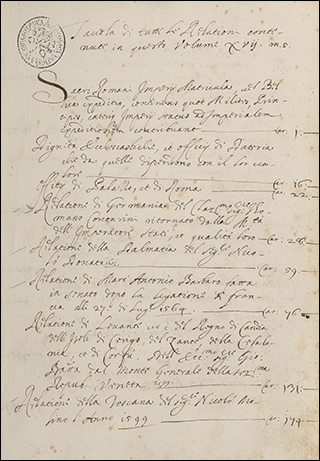 Tavola di tutte le Relationi conte-
nute in questo Volume XVII. m.s.
Sacri Romani Imperij Matricula, vel Bil-
continens quot Milites, Prin-
cipes, cæteri Imperij status ad Imperialem
Expeditionem contribuant car. 1.
Dignità Ecclesiastiche, et officij di Dateria
da quelle dipendono con il lor va-
lore car. 16.
Officij di Palazzo, et di Roma car. 22.
Relatione di Germania del Clar.mo Sig.r Tho-
maso Contarini ritornato dalla M.tà
dell'Imperatore Stati, et qualità loro car. 28.
Relatione della Dalmatia del Sig.r Nico-
lò Donato car. 59.
Relatione di Marc'Antonio Barbaro fatta
in Senato dopo la legatione di Fran-
cia alli 27 di Lug.o 1564 car. 76.
Relatione di Levante cio è del Regno di Candia
dell'Isole di Cerigo, del Zante, della Cefalo-
nia, et di Corfù. Dell' Ecc.mo Sig.r Gio.
Batta dal Monte Generale della Ser.ma
Repub. Veneta car. 131.
Relatione della Toscana del Sig.r Nicolò Mo-
lino l'Anno 1599 car. 174.